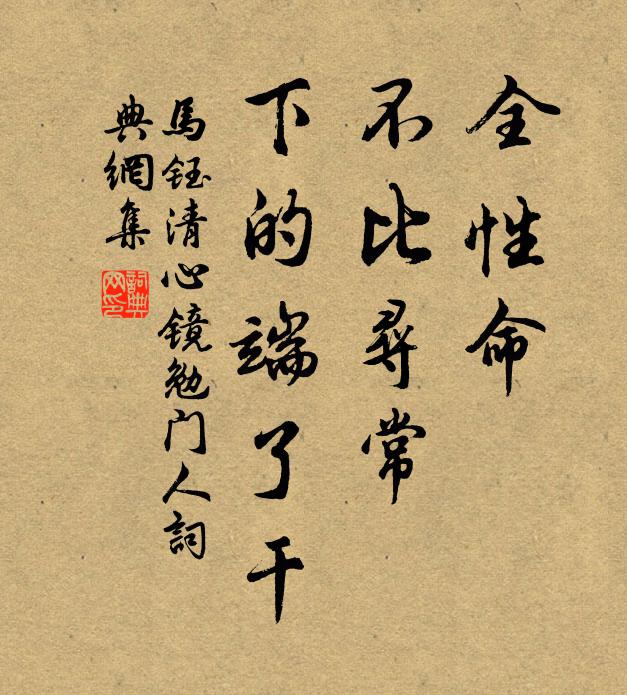 全性命
不比尋常
下的端了干
馬鈺清心镜勉门人詞
典網集
詞典
网印